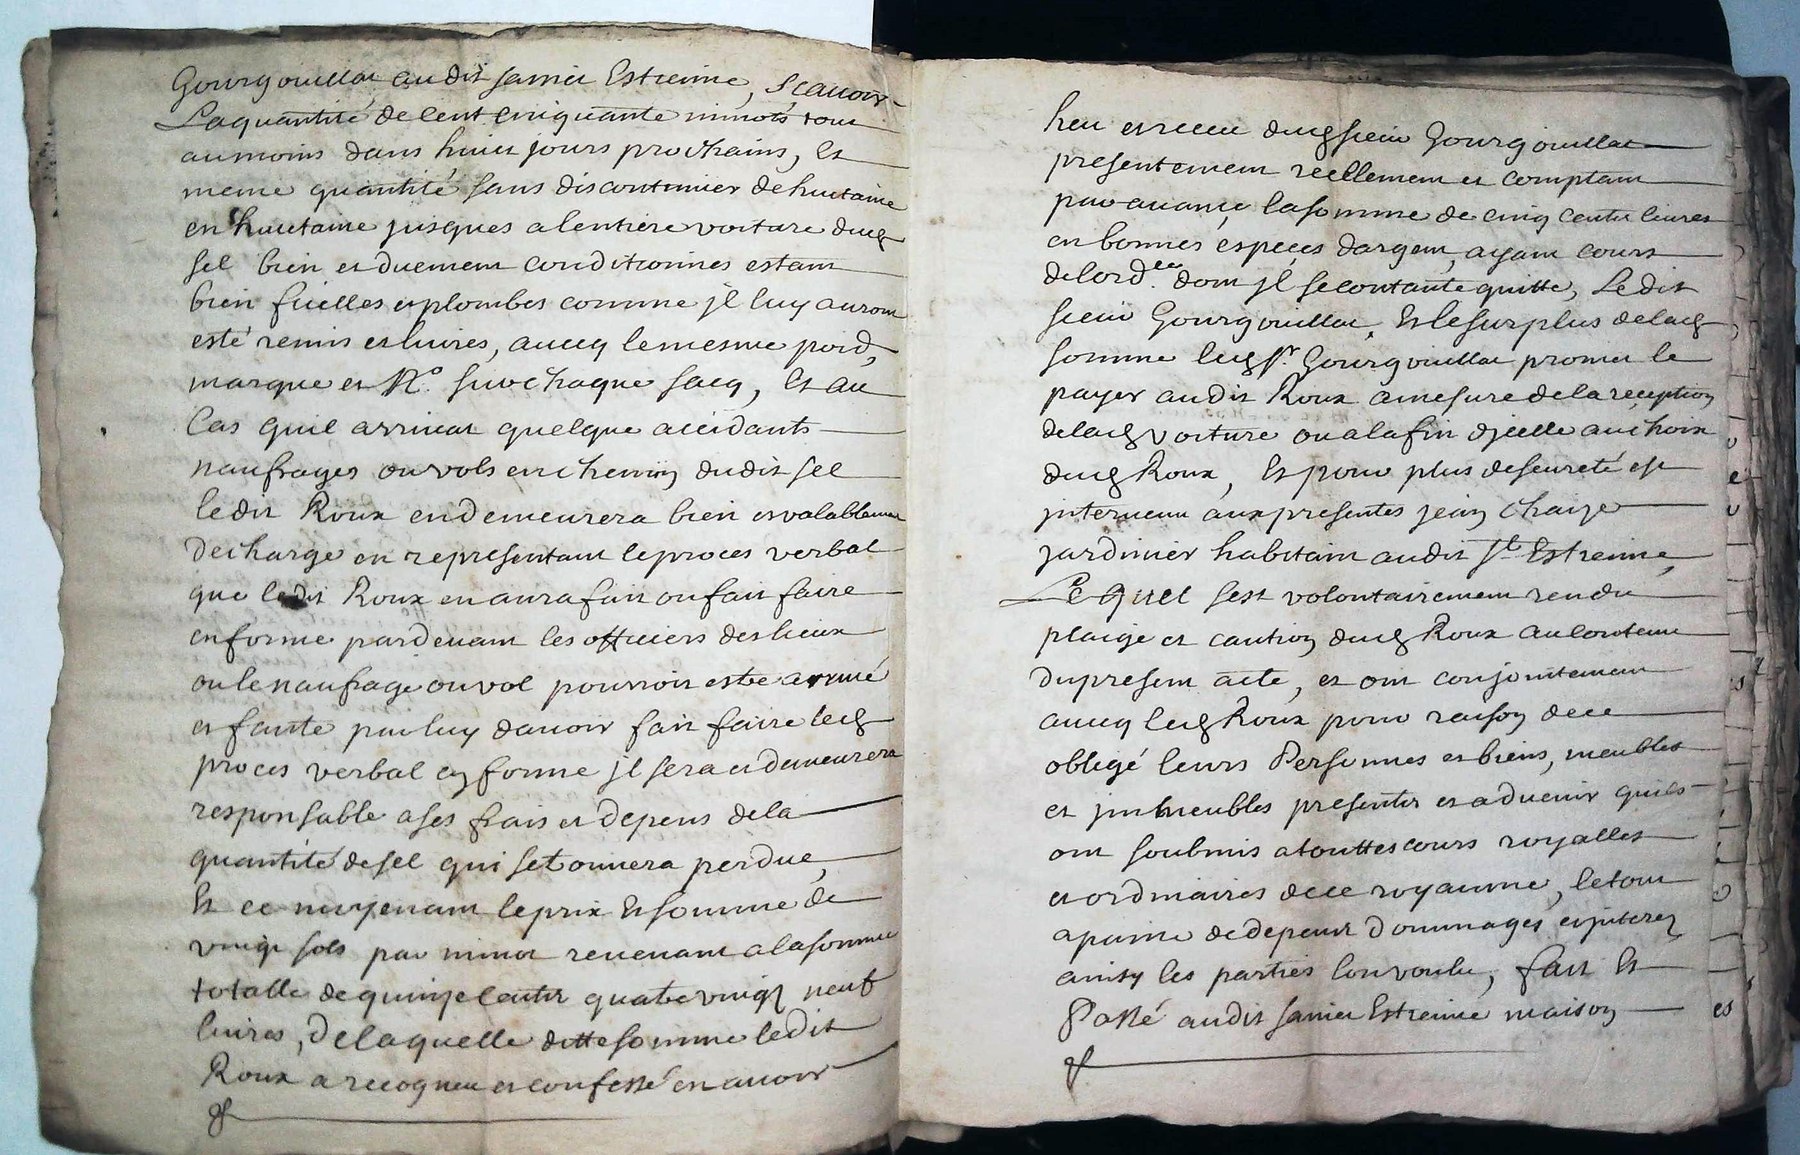 Gourgouillat audit sainct Estienne, scauoir
La quantité de cent cinquante minots tout
au moins dans huict jours prochains, Et
meme quantité sans discontinuer de huictaine
en huictaine jusques a lentiere voiture dud
sel bien et duement conditionnes estant
bien ficelles et plombes comme jl luy auront
esté remis et liures, auecq le mesme poid,
marque et No. sur chaque sacq, Et au
Cas quil arriuat quelque accidants
naufrages ou vols en chemin dudit sel
ledit Roux en demeurera bien et valablement
decharge en representant le proces verbal
que ledit Roux en aura fait ou fait faire
en forme pardeuant les officiers des lieux
ou le naufrage ou vol pourroit estre arriué
et faute par luy dauoir fait faire led
proces verbal en forme jl sera et demeurera
responsable a ses frais et depens de la
quantité de sel qui se trouuera perdue,
Et ce moyenant le prix Et somme de
vingt sols par minot reuenant a la somme
totalle de quinze cents quatre vingt neuf
liures, De laquelle ditte somme ledit
Roux a recogneu et confessé en auoir
heu et receu dud sieur Gourgouillat
presentement reellement et comptant
par auance la somme de cinq cents liures
en bonnes especes dargent, ayant cours
de lord.ce dont jl se contante quitte, Ledit
sieur Gourgouillat, Et le surplus de lad
somme led sr. Gourgouillat promet le
payer audit Roux a mesure de la reception
de lad voiture ou a la fin djcelle au choix
dud Roux, Et pour plus de seureté est
jnteruenu aux presentes jean chaize
jardinier habitant audit St Estienne,
Lequel sest volontairement rendu
plaige et caution dud Roux au contenu
du present acte, et ont conjointement
auecq led Roux pour raison de ce
obligé leurs Personnes et biens, meubles
et jmmeubles presents et aduenir quils
ont soubmis a touttes cours royalles
et ordinaires de ce royaume, le tout
a paine de depens Dommages et jnterez
ainsy les parties lon voulu, fait Et
Passé audit sainct Estienne maison